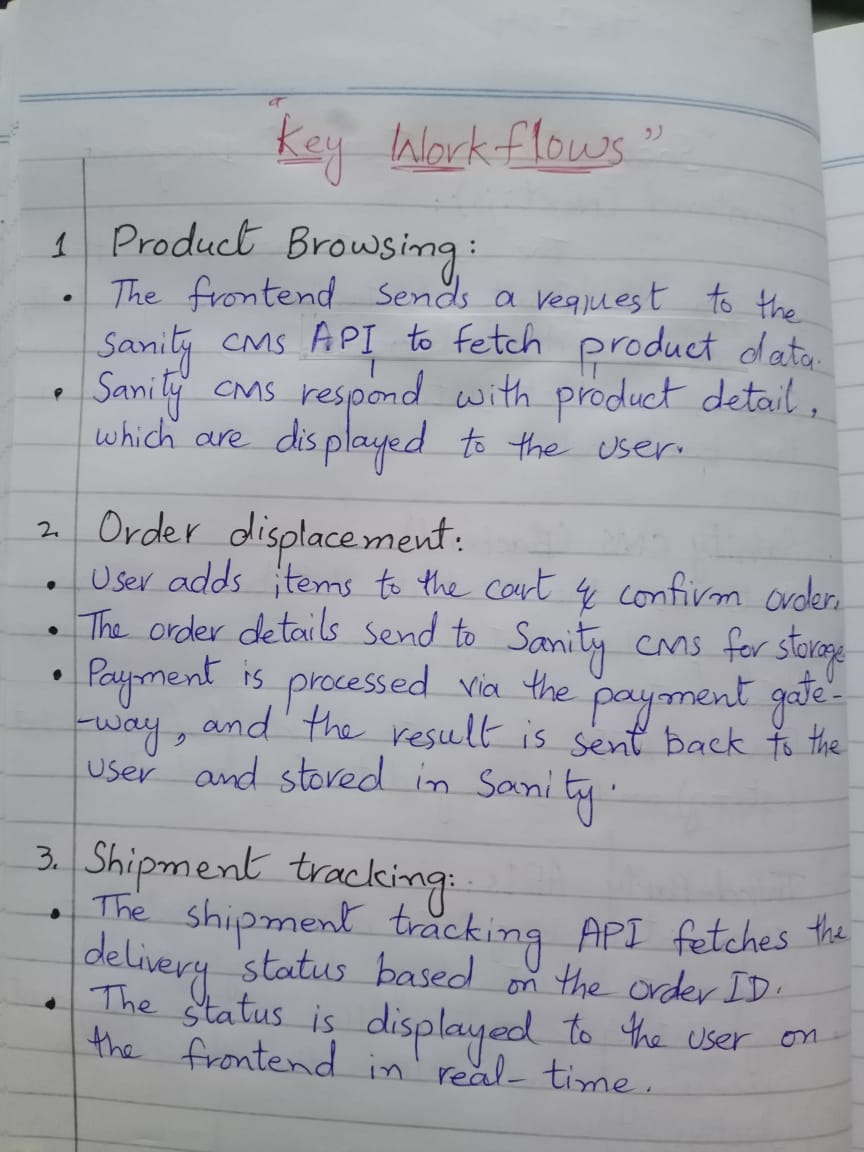 "Key Workflows"
1 Product Browsing:
• The frontend sends a request to the
Sanity CMS API to fetch product data.
• Sanity CMS respond with product detail,
which are displayed to the user.
2. Order displacement:
• User adds items to the cart & confirm order.
• The order details send to Sanity CMS for storage
• Payment is processed via the payment gate-
-way, and the result is sent back to the
user and stored in Sanity.
3. Shipment tracking:
• The shipment tracking API fetches the
delivery status based on the order ID.
• The status is displayed to the user on
the frontend in real-time.